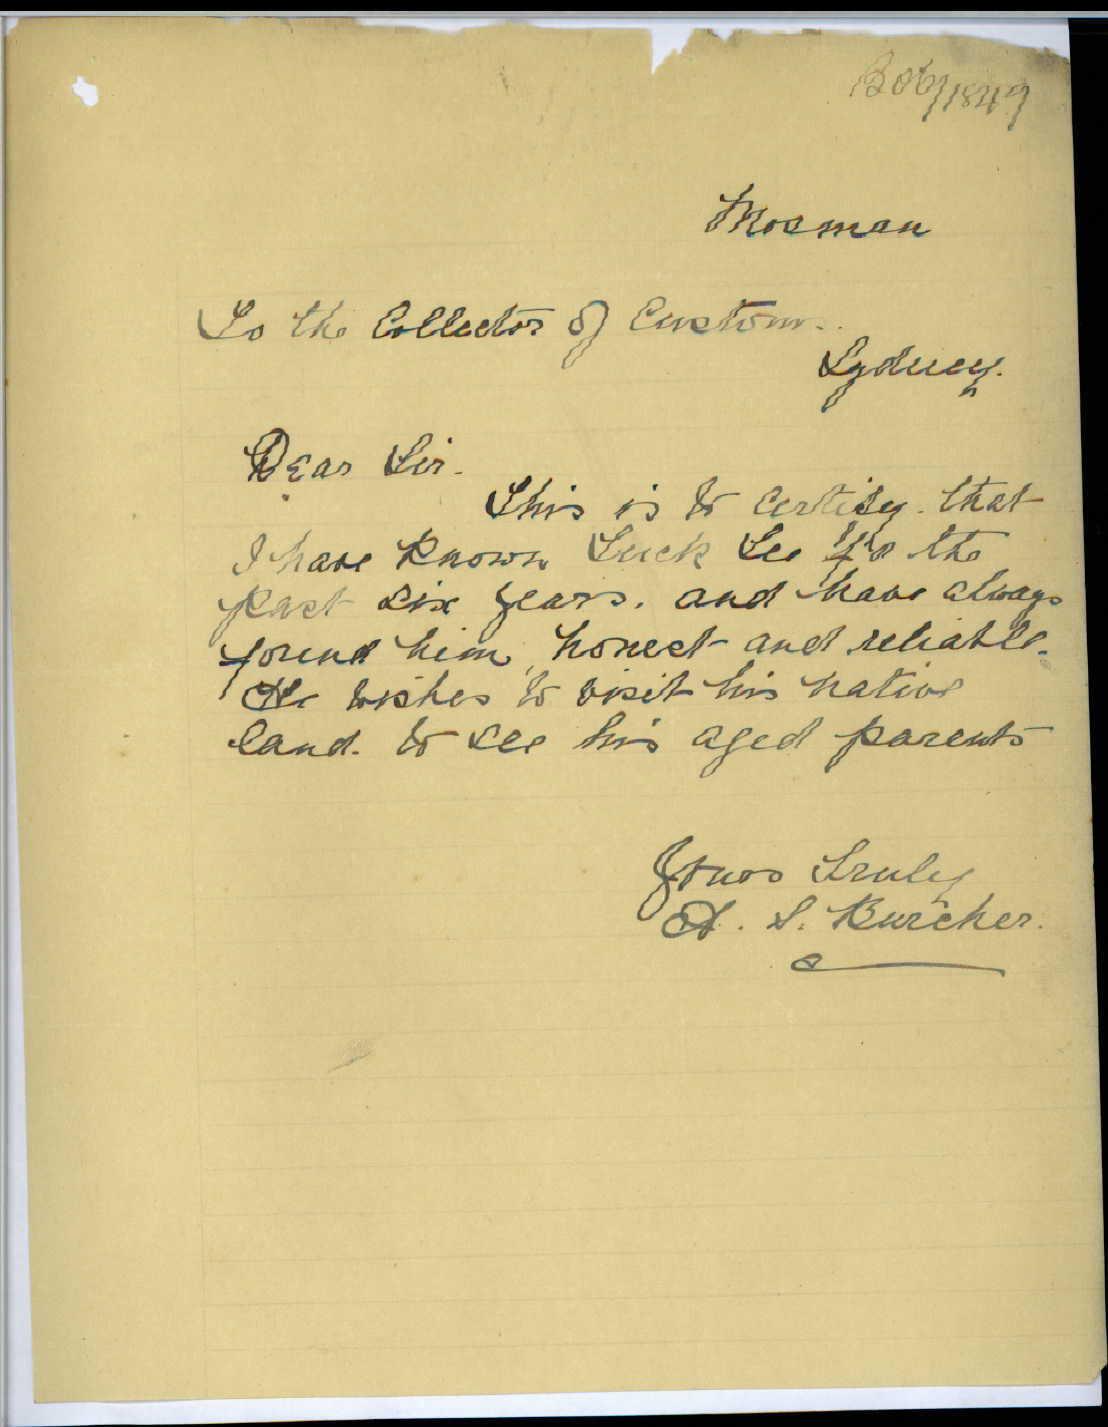 B06/1849
Mosman
To the Collector of Customs.
Sydney.
Dear Sir.
This is to certify. that
I have known Luck Lee for the
past six years. and have always
found him, honest and reliable.
He wishes to visit his native
land. to see his aged parents
Yours Truly
A. S. Burcher.